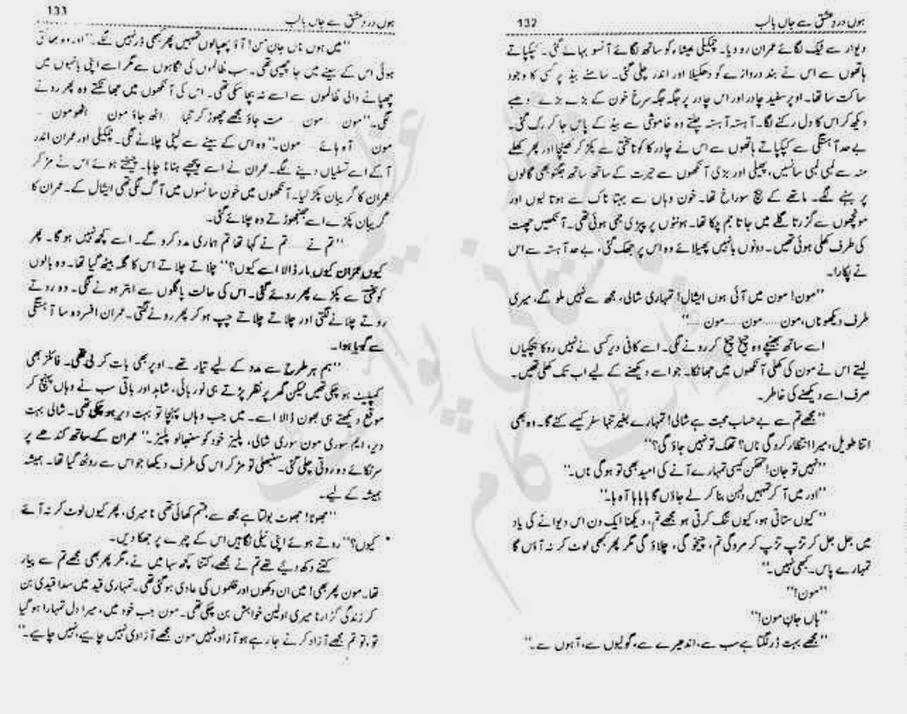 132
ہوں دردِ عشق سے جاں بالب
دیوار سے ٹیک لگائے عمران رو دیا۔ چمکیلی عیشاء کو ساتھ لگائے آنسو بہائے گئی۔ کپکپاتے
ہاتھوں سے اس نے بند دروازے کو دھکیلا اور اندر چلی گئی۔ سامنے بیڈ پر کسی کا وجود
ساکت سا تھا۔ اوپر سفید چادر اور اس چادر پر جگہ جگہ سرخ خون کے بڑے بڑے دھبے
دیکھ کر اس کا دل رکنے لگا۔ آہستہ آہستہ چلتے وہ خاموشی سے بیڈ کے پاس جا کر رک گئی۔
بے حد آہستگی سے کپکپاتے ہاتھوں سے اس نے چادر کا کونا سختی سے پکڑ کر کھینچا اور پھر کھلے
منہ سے لمبی لمبی سانسیں، پھیلی اور بڑی آنکھوں سے حیرت کے ساتھ ساتھ جگنو بھی گالوں
پر بہنے لگے۔ ماتھے کے بیچ سوراخ تھا۔ خون وہاں سے بہتا ناک سے ہوتا لبوں اور
مونچھوں سے گزرتا گلے میں جاتا جم چکا تھا۔ ہونٹوں پر پپڑی جمی ہوئی تھی۔ آنکھیں چھت
کی طرف کھلی ہوئی تھیں۔ دونوں بانہیں پھیلائے وہ اس پر جھک گئی، بے حد آہستہ سے اس
نے پکارا۔
”مون! مون میں آئی ہوں ایشال! تمہاری شالی، مجھ سے نہیں ملو گے، میری
طرف دیکھو ناں، مون...... مون...... مون......“
اسے ساتھ بھینچے وہ چیخ چیخ کر رونے لگی۔ اسے کافی دیر کسی نے نہیں روکا ہچکیاں
لیتے اس نے مون کی کھلی آنکھوں میں جھانکا۔ جو اسے دیکھنے کے لیے اب تک کھلی تھیں۔
صرف اسے دیکھنے کی خاطر۔
”مجھے تم سے بے حساب محبت ہے شالی! تمہارے بغیر تنہا سفر کیسے کٹے گا۔ وہ بھی
اتنا طویل، میرا انتظار کرو گی ناں؟ تھک تو نہیں جاؤ گی؟“
”نہیں تو جان! تھکن کیسی تمہارے آنے کی امید بھی تو ہو گی ناں۔“
”اور میں آ کر تمہیں دلہن بنا کر لے جاؤں گا ہاہاہا آہاہا۔“
”کیوں ستاتی ہو، کیوں تنگ کرتی ہو مجھے تم، دیکھنا ایک دن اس دیوانے کی یاد
میں جل جل کر تڑپ تڑپ کر مرو گی تم، چیخو گی، چلاؤ گی مگر پھر کبھی لوٹ کر نہ آؤں گا
تمہارے پاس۔ کبھی نہیں۔“
”مون!“
”ہاں جانِ مون!“
”مجھے بہت ڈر لگتا ہے سب سے، اندھیرے سے، گولیوں سے، آہوں سے۔“
133
ہوں دردِ عشق سے جاں بالب
”میں ہوں ناں جانِ من! آؤ چھپا لوں تمہیں پھر کبھی ڈر نہیں لگے۔“ اور وہ بھاگتی
ہوئی اس کے سینے میں جا چھپی تھی۔ سب ظالموں کی نگاہوں سے مگر اسے اپنی بانہوں میں
چھپانے والی ظالموں سے اسے نہ بچا سکی تھی۔ اس کی آنکھوں میں جھانکتے وہ پھر رونے
لگی۔ ”مون مون مون مت جاؤ مجھے چھوڑ کر تنہا اٹھ جاؤ مون اٹھو مون
مون آہ ہائے مون۔“ وہ اس کے سینے سے لپٹی چلانے لگی۔ چمکیلی اور عمران اندر
آکے اسے تسلیاں دینے لگے۔ عمران نے اسے پیچھے ہٹانا چاہا۔ چیختے ہوئے اس نے مڑ کر
عمران کا گریبان پکڑ لیا۔ آنکھوں میں خون سانسوں میں آگ لگی تھی ایشال کے۔ عمران کا
گریبان پکڑے اسے جھنجھوڑتے وہ چلائے گئی۔
”تم نے...... تم نے کہا تھا تم ہماری مدد کرو گے۔ اسے کچھ نہیں ہو گا۔ پھر
کیوں عمران کیوں مار ڈالا اسے کیوں؟“ چلاتے چلاتے اس کا گلہ بیٹھ گیا تھا۔ وہ بالوں
کو سختی سے پکڑے پھر روئے گئی۔ اس کی حالت پاگلوں سے ابتر ہونے لگی۔ وہ روتے
روتے چلانے لگتی اور چلاتے چلاتے چپ ہو کر پھر رونے لگتی۔ عمران افسردہ سا آہستگی
سے گویا ہوا۔
”ہم ہر طرح سے مدد کے لیے تیار تھے۔ اوپر بھی بات کر لی تھی۔ فائلز بھی
کمپلیٹ ہو چکی تھیں لیکن گھر پر نظر پڑتے ہی نور بائی، شاہد اور باقی سب نے وہاں پہنچ کر
موقع دیکھتے ہی بھون ڈالا اسے۔ میں جب وہاں پہنچا تو بہت دیر ہو چکی تھی۔ شالی بہت
دیر، ایم سوری مون سوری شالی، پلیز خود کو سنبھالو پلیز۔“ عمران کے ساتھ کندھے پر
سر ٹکائے وہ روتی چلی گئی۔ سنبھلی تو مڑ کر اس کی طرف دیکھا جو اس سے روٹھ گیا تھا۔ ہمیشہ
ہمیشہ کے لیے۔
”جھوٹا! جھوٹ بولتا ہے مجھ سے، قسم کھائی تھی نا میری، پھر کیوں لوٹ کر نہ آئے
کیوں؟“ روتے ہوئے اپنی نیلی نگاہیں اس کے چہرے پر جھکا دیں۔
کتنے دکھ دیئے تھے تم نے مجھے، کتنا کچھ سہا میں نے، مگر پھر بھی مجھے تم سے پیار
تھا۔ مون پھر بھی! میں ان دکھوں اور ظلموں کی عادی ہو گئی تھی۔ تمہاری قید میں سدا قیدی بن
کر زندگی گزارنا میری اولین خواہش بن چکی تھی۔ مون جب خود میں، میرا دل تمہارا ہو گیا
تو، تو تم مجھے آزاد کرنے جا رہے ہو آزاد، نہیں مون مجھے آزادی نہیں چاہیے، نہیں چاہیے۔“